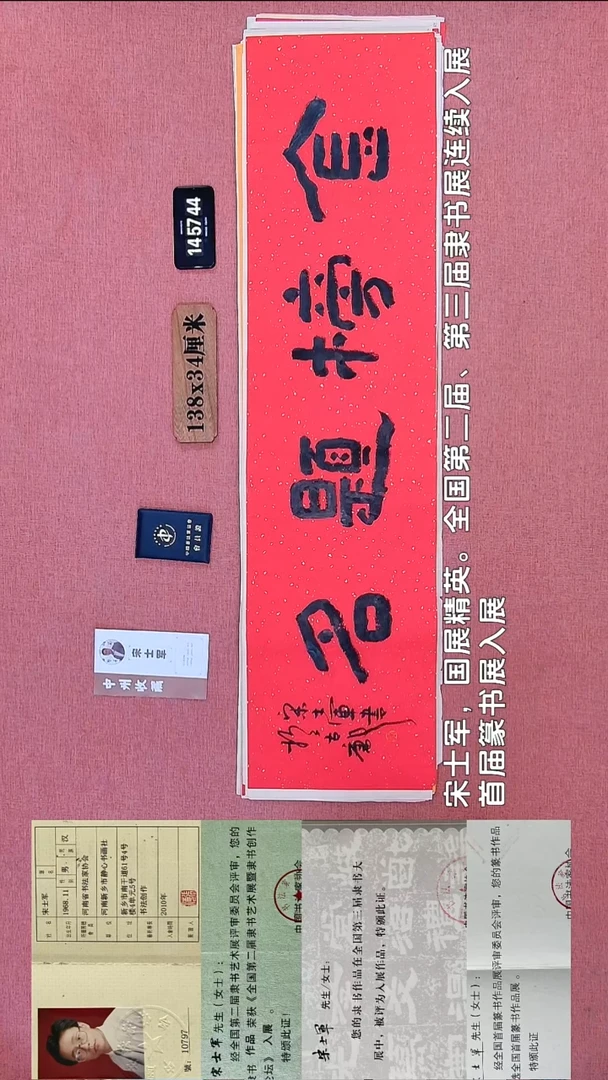 14 57 44
138x34厘米
中国书法家协会
会员证
宋士军
中州收藏
金榜題名
宋士軍書
宋士军，国展精英。全国第二届、第三届隶书展连续入展
首届篆书展入展
號：10797
宋士军
1968.11 男 汉
河南省书法家协会
河南新乡市静心书画社
新乡市南干道61号4号
楼6单元5号
书法创作
2010年
宋士军 先生（女士）：
经全国第二届隶书艺术展评审委员会评审，您的
隶书 作品 荣获《全国第二届隶书艺术展暨隶书创作
论坛》入展 。
特颁此证！
宋士军 先生/女士：
您的隶书作品在全国第三届隶书大
展中，被评为入展作品，特颁此证。
士军 先生（女士）：
经全国首届篆书作品展评审委员会评审，您的篆书作品
选全国首届篆书作品展。
特颁此证